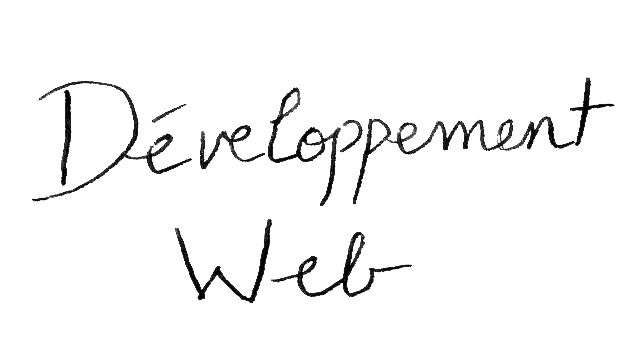 Développement
Web